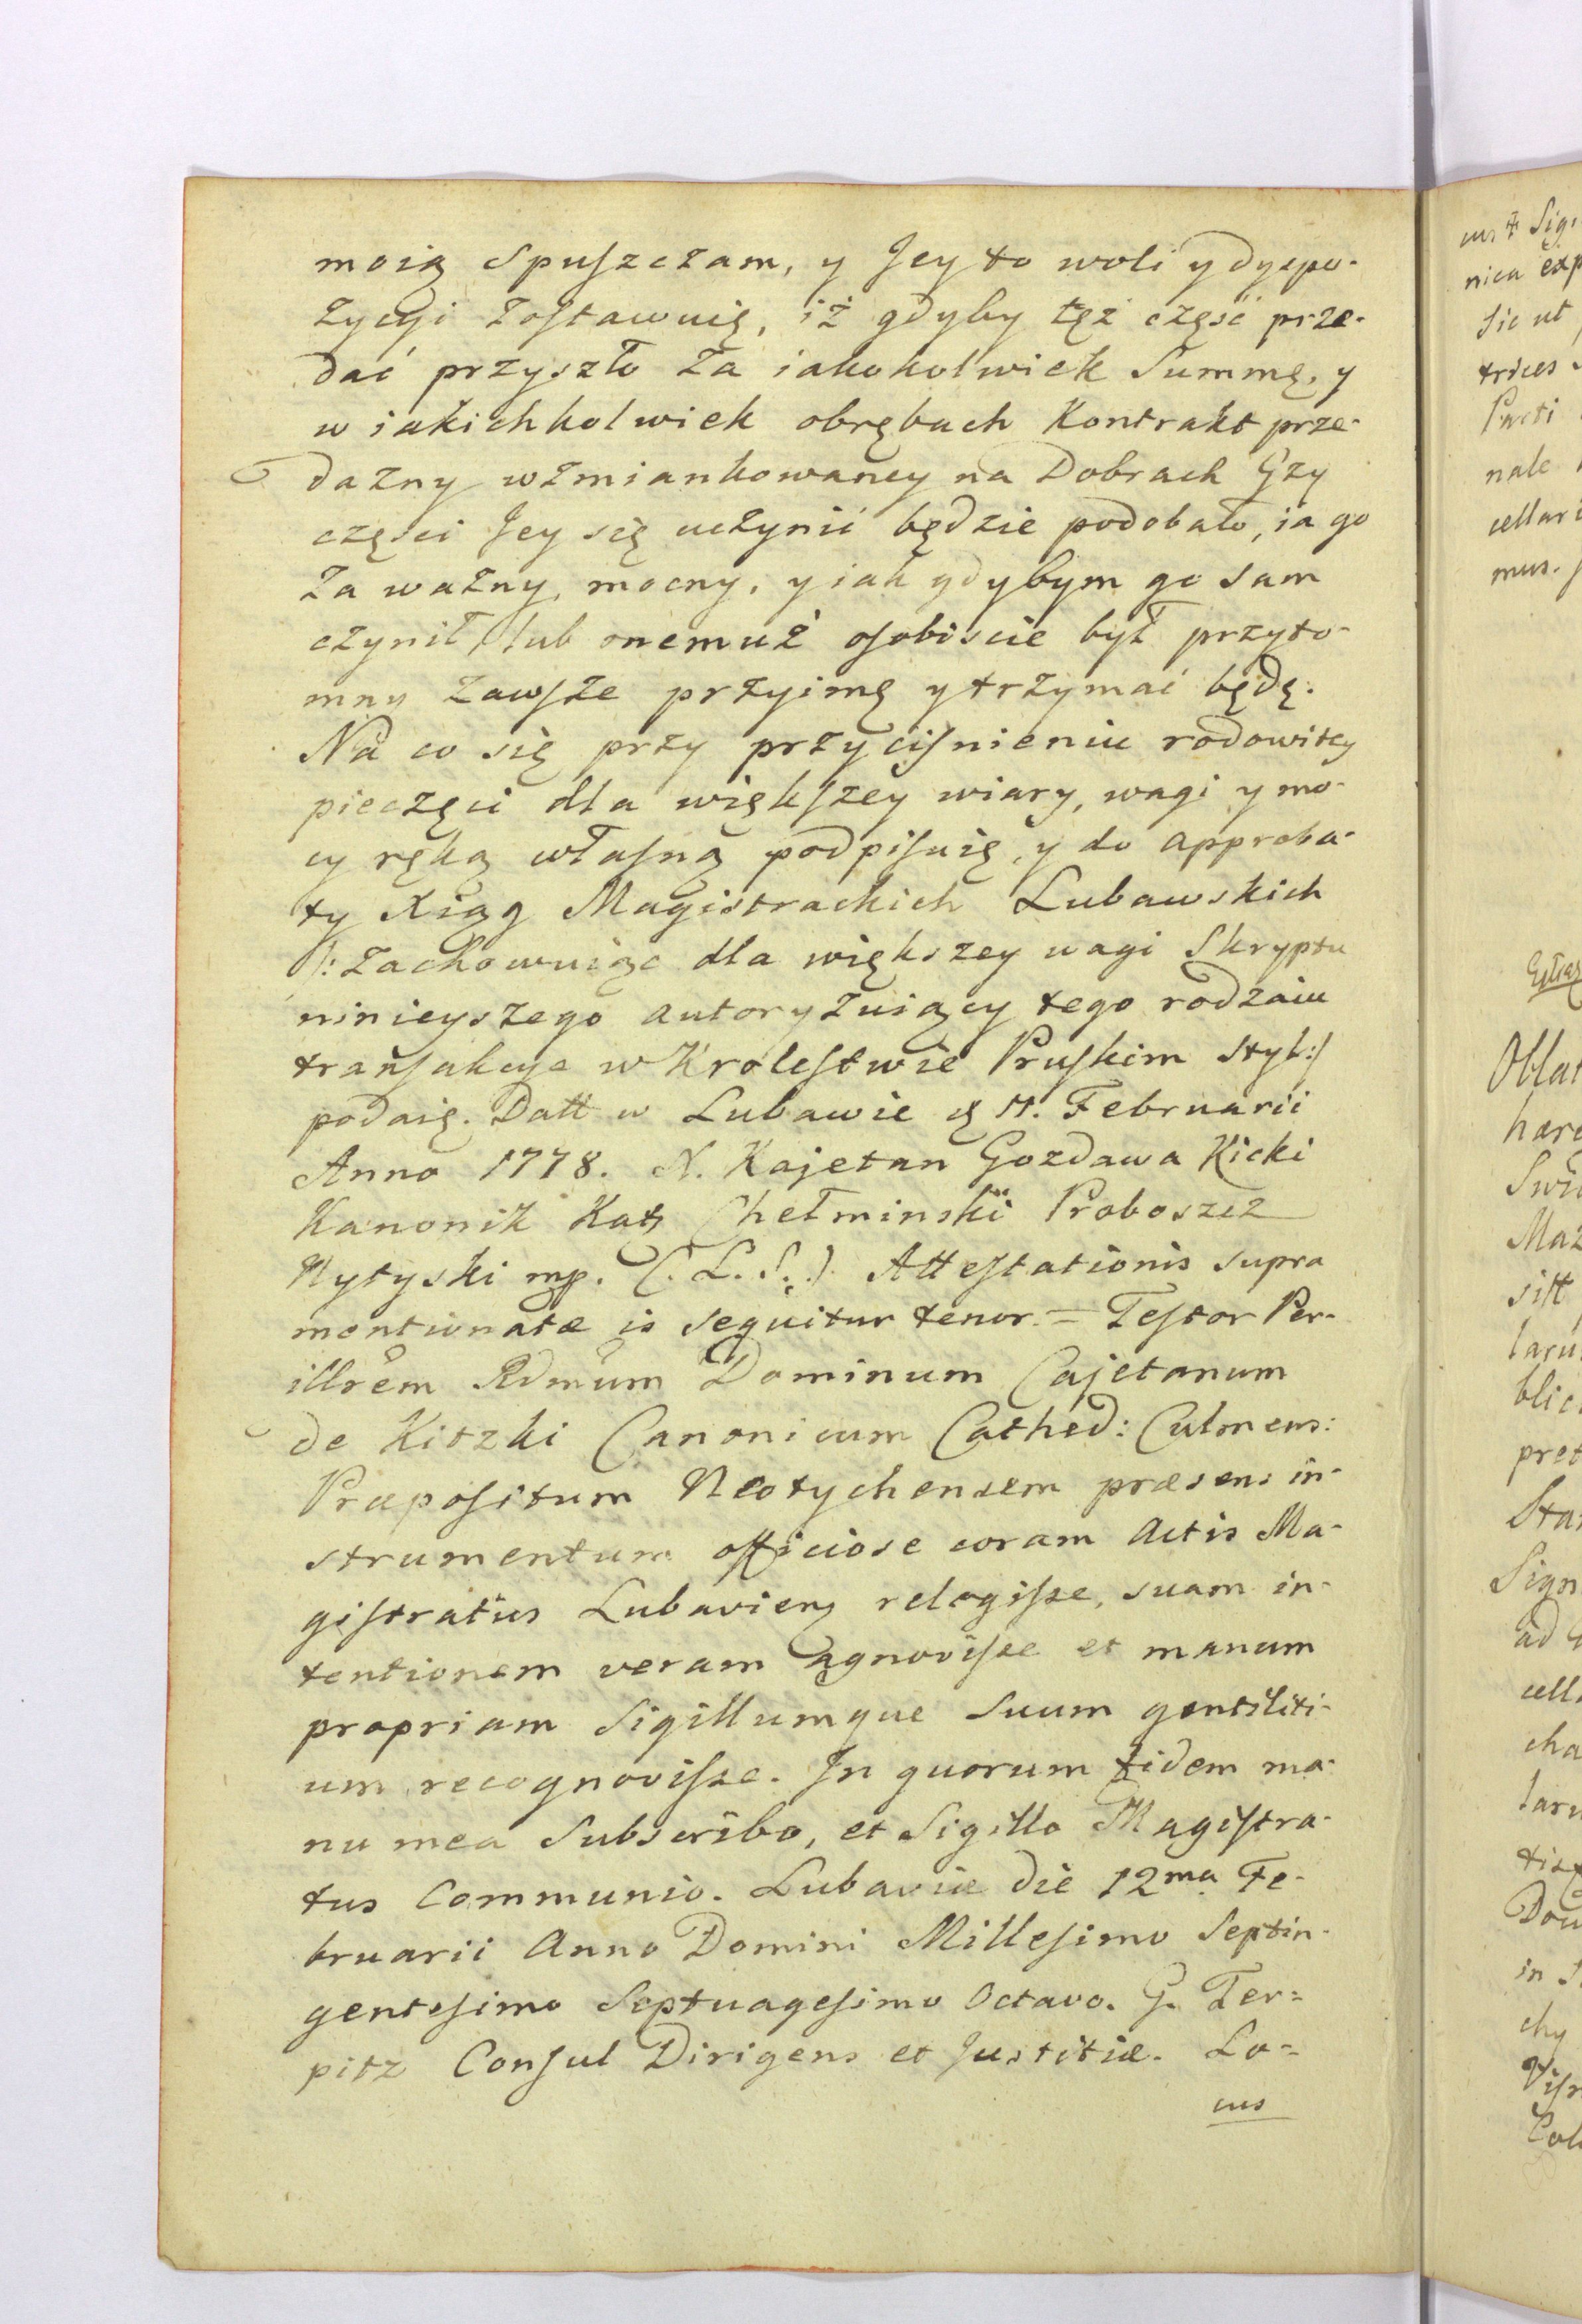 moią spuszczam, y Jey to woli y dyspo-
zycyi zostawuię, iż gdyby tęż część prze-
dać przyszło za iakokolwiek Summę, y
w iakichkolwiek obrębach Kontrakt prze-
dazny wzmiankowaney na Dobrach Gzy
części Jey się uczynić będzie podobało, ia go
za ważny, mocny, y iak gdybym go sam
czynił, lub onemuż osobiscie był przyto-
mny zawsze przyimę y trzymać będę.
Na co się przy przyciśnieniu rodowitey
pieczęci dla większey wiary, wagi y mo-
cy ręką własną podpisuię, y do approba-
ty Xiąg Magistrackich Lubawskich
/: zachowuiąc dla większey wagi Skryptu
ninieyszego autoryzuiący tego rodzaiu
transakcye w Krolestwie Pruskim styl :/
podaię. Datt w Lubawie d 11. Februarii
Anno 1778. N. Kajetan Gozdawa Kicki
Kanonik Kat Chełminski Proboszcz
Nytyski mp. (. L. S. .) Attestationis supra
mentionatæ is sequitur tenor. = Testor Per-
illrem Rdmum Dominum Cajetanum
de Kitzki Canonicum Cathed: Culmens:
Præpositum Neotychensem præsens in-
strumentum officiose coram Actis Ma-
gistratus Lubaviens relegisse, suam in-
tentionem veram agnovisse et manum
propriam Sigillumque Suum gentiliti-
um recognovisse. In quorum fidem ma-
nu mea Subscribo, et Sigillo Magistra-
tus Communio. Lubaviæ die 12ma Fe-
bruarii Anno Domini Millesimo Septin-
gentesimo Septuagesimo Octavo. G. Ter=
pitz Consul Dirigens et Justitiæ. Lo=
cus
cus
nica
Sic ut
trices
nale
mus.
Oblat
ad
cha
in
chy